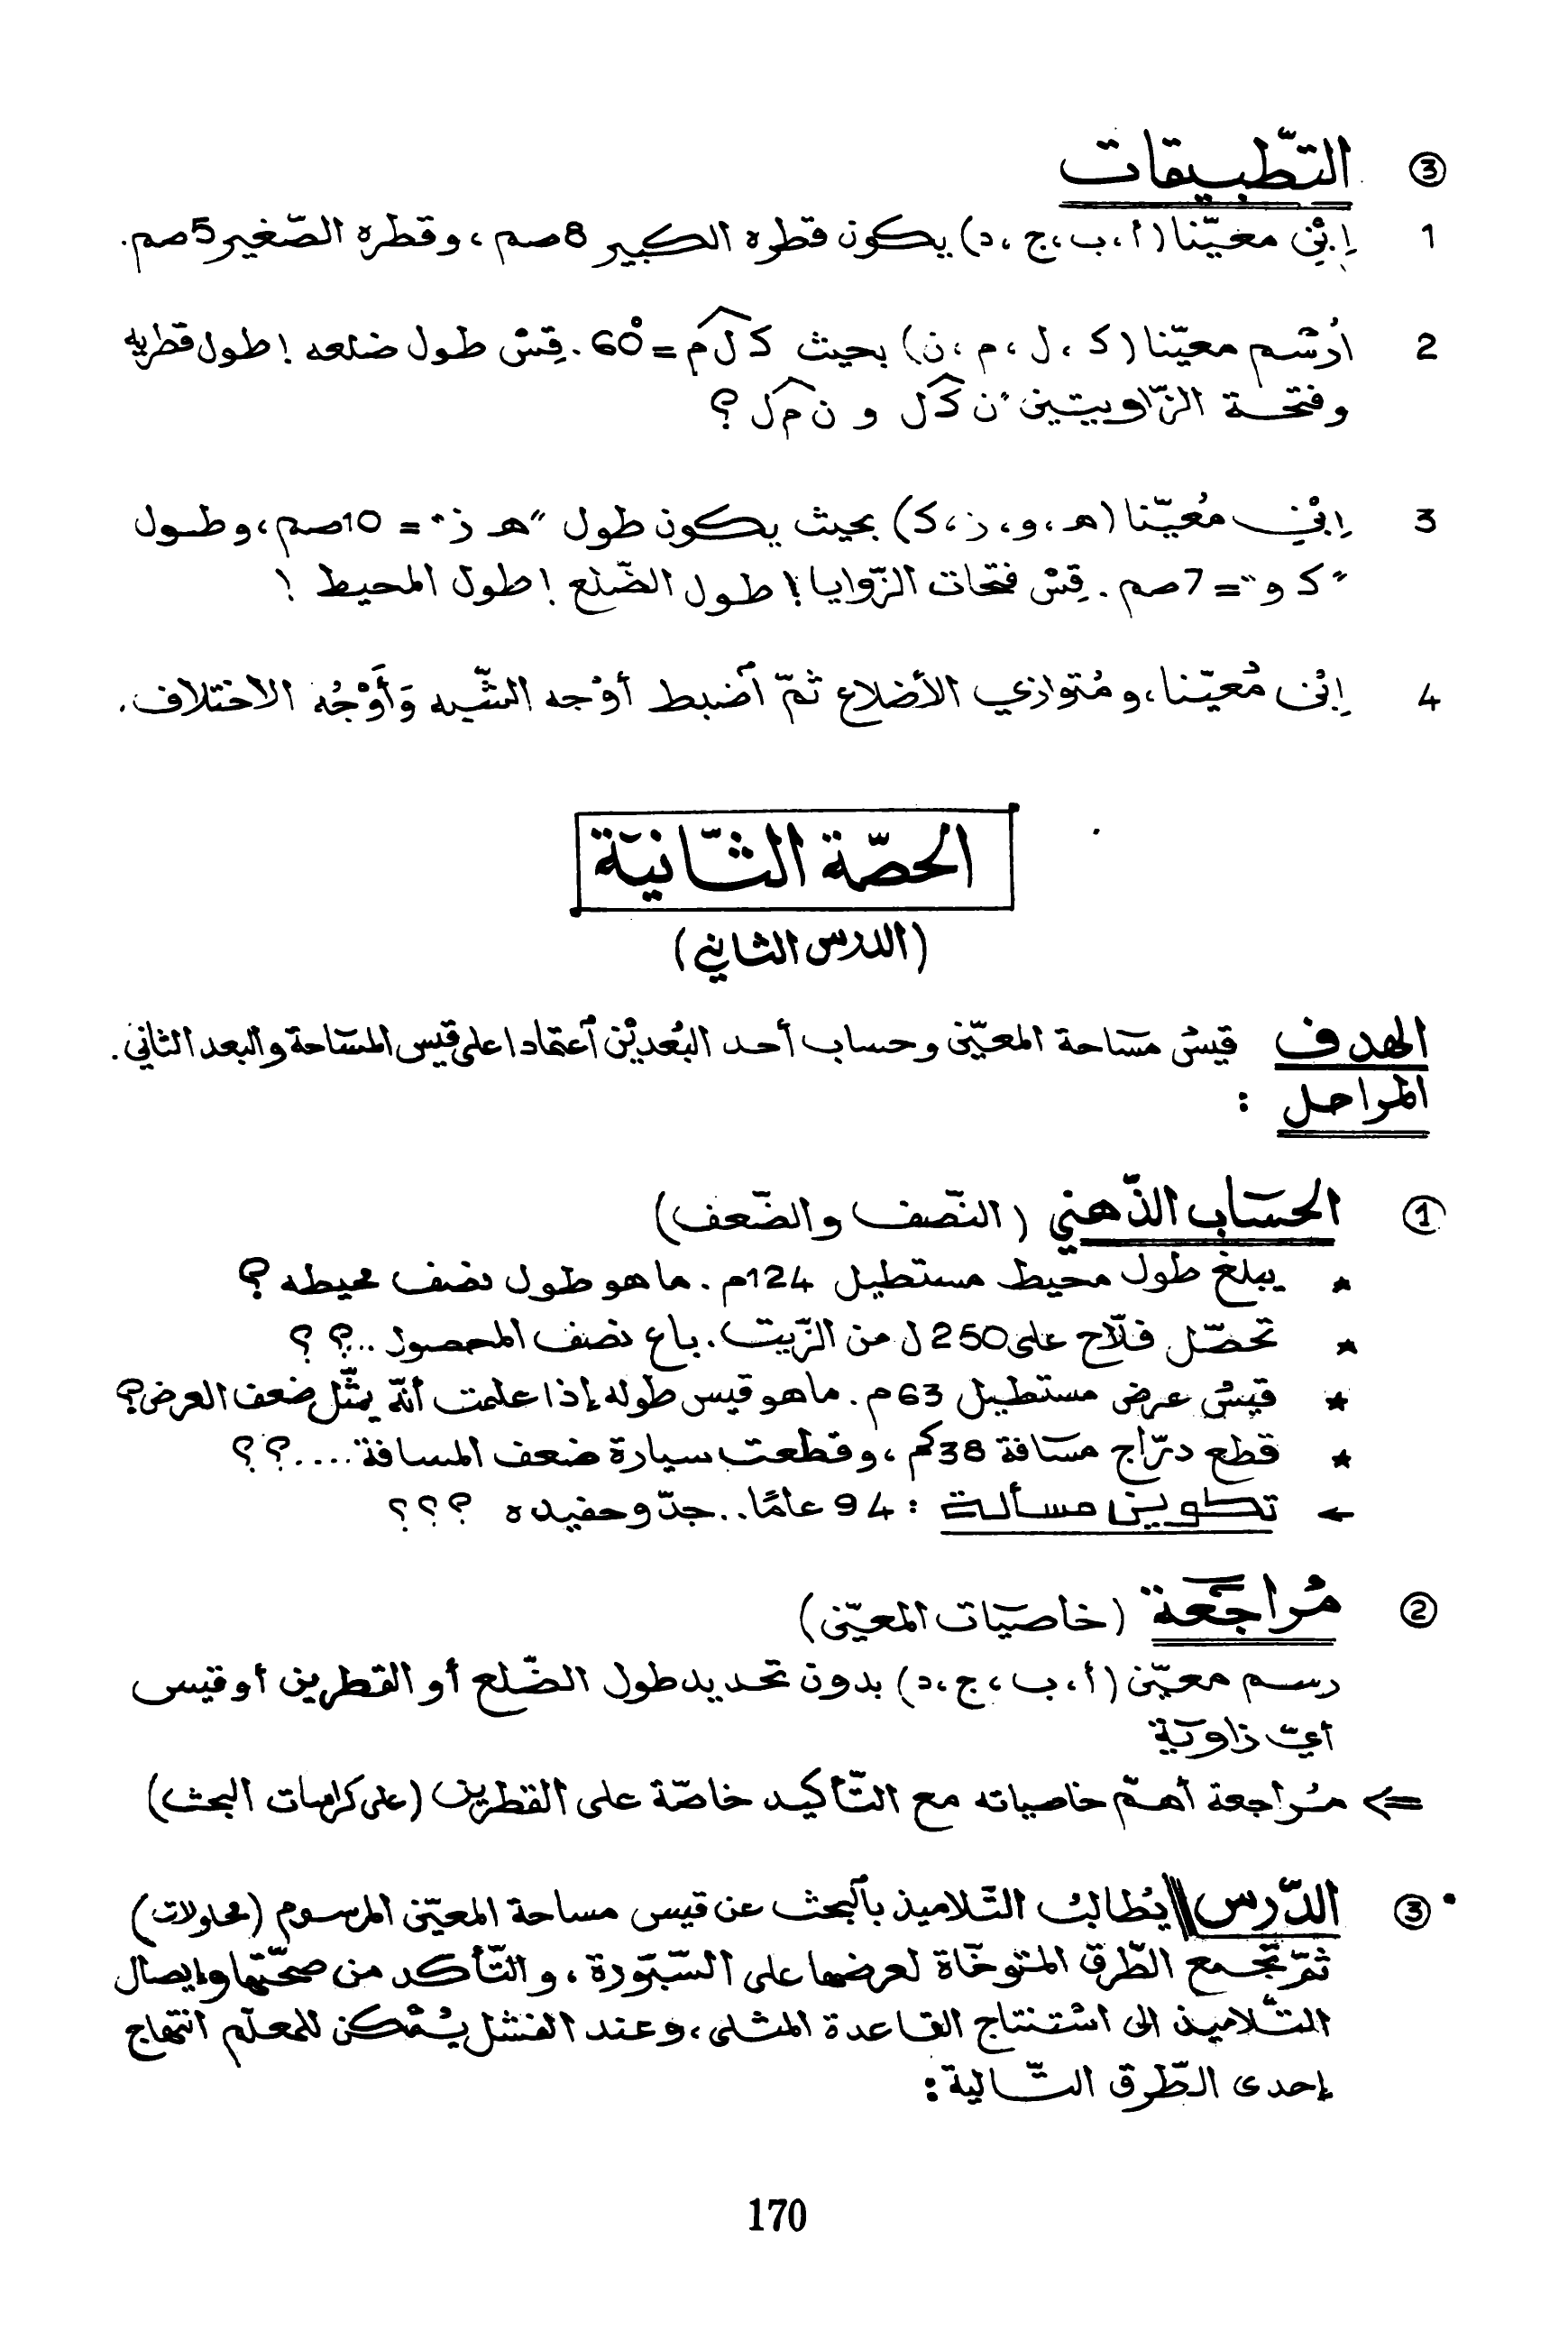 ③ التّطبيقات
1 اِبْنِ معيّنا (أ، ب، ج، د) يكون قطره الكبير 8صم، وقطره الصّغير 5صم.
2 اُرْسُم معيّنا (ك، ل، م، ن) بحيث كلم = 60°. قِسْ طول ضلعه ! طول قطريه
وفتحة الزّاويتين "ن ك ل و ن م ل ؟
3 اِبْنِ مُعيّنا (هـ، و، ز، ك) بحيث يكون طول "هـ ز" = 10صم، وطول
"ك و" = 7صم. قِسْ فتحات الزّوايا ! طول الضّلع ! طول المحيط !
4 اِبْنِ مُعيّنا، ومُتوازي الأضلاع ثمّ اضبط أوْجه الشّبه وَأوْجُه الاختلاف.
الحصّة الثّانية
(الدرس الثاني)
الهدف قيسُ مسَاحة المعيّن وحساب أحد البُعديْن اعتمادا على قيس المسَاحة والبعد الثاني.
المراحل :
① الحسَاب الذّهني (النّصف والضّعف)
* يبلغ طول محيط مستطيل 124م. ما هو طول نصف محيطه ؟
* تحصّل فلّاح على 250ل من الزّيت. باع نصف المحصول ..؟ ؟
* قيسُ عرض مستطيل 63م. ما هو قيس طوله إذا علمت أنّه يمثّل ضعف العرض؟
* قطع درّاج مسَافة 38كم، وقطعت سيارة ضعف المسافة ....؟ ؟
← تكوين مسألة : 94 عامًا.. جدّ وحفيده ؟ ؟ ؟
② مُراجَعة (خاصيَات المعيّن)
رسم معيّن (أ، ب، ج، د) بدون تحديد طول الضّلع أو القطرين أو قيس
أيّ زاوية
=> مُراجعة أهمّ خاصياته مع التّأكيد خاصّة على القطرين (على كراسات البحث)
③ الدّرس \\ يُطالبُ التّلاميذ بالبحث عن قيس مساحة المعيّن المرسوم (محاولات)
ثمّ تجمع الطّرق المتوخّاة لعرضها على السّبّورة، والتّأكد من صحّتها وإيصال
التّلاميذ إلى اسْتنتاج القاعدة المثلى، وعند الفشل يُمْكن للمعلّم انتهاج
إحدى الطّرق التّالية :
170